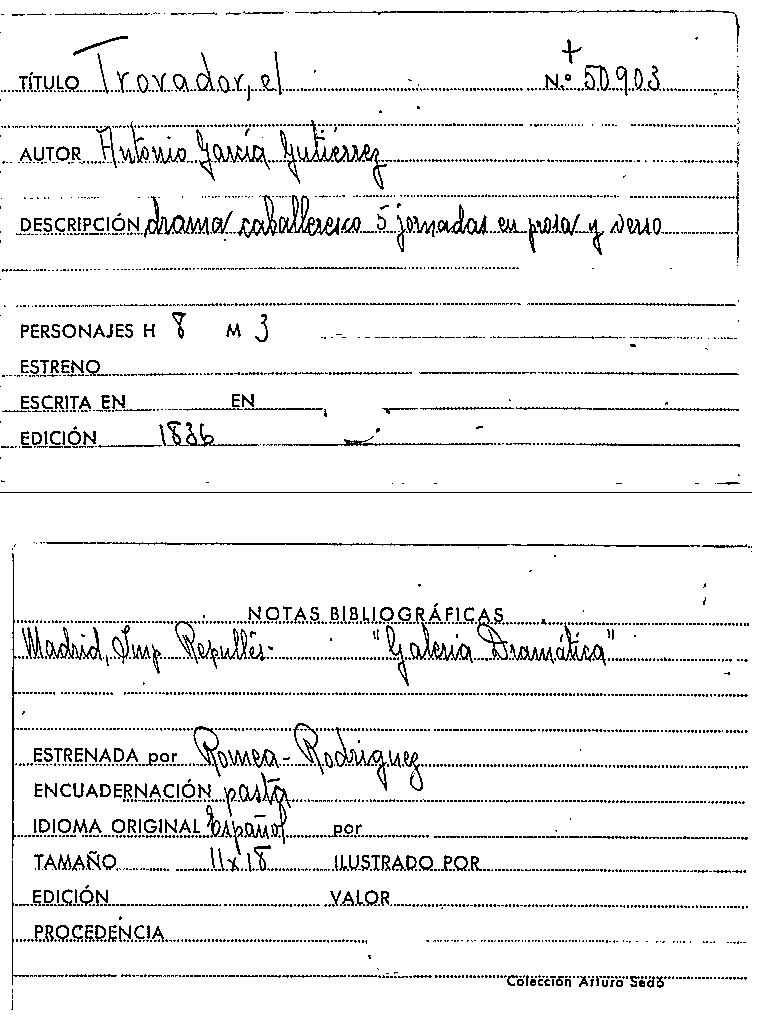 TÍTULO Trovador, el N.º 50903
AUTOR Antonio García Gutiérrez
DESCRIPCIÓN drama caballeresco 5 jornadas en prosa y verso
PERSONAJES H 8 M 3
ESTRENO
ESCRITA EN EN
EDICIÓN 1836
NOTAS BIBLIOGRÁFICAS
Madrid, Imp. Repullés- "Galeria Dramática"
ESTRENADA por Romea-Rodriguez
ENCUADERNACIÓN pasta
IDIOMA ORIGINAL Español por
TAMAÑO 11x18 ILUSTRADO POR
EDICIÓN VALOR
PROCEDENCIA
Colección Arturo Sedó